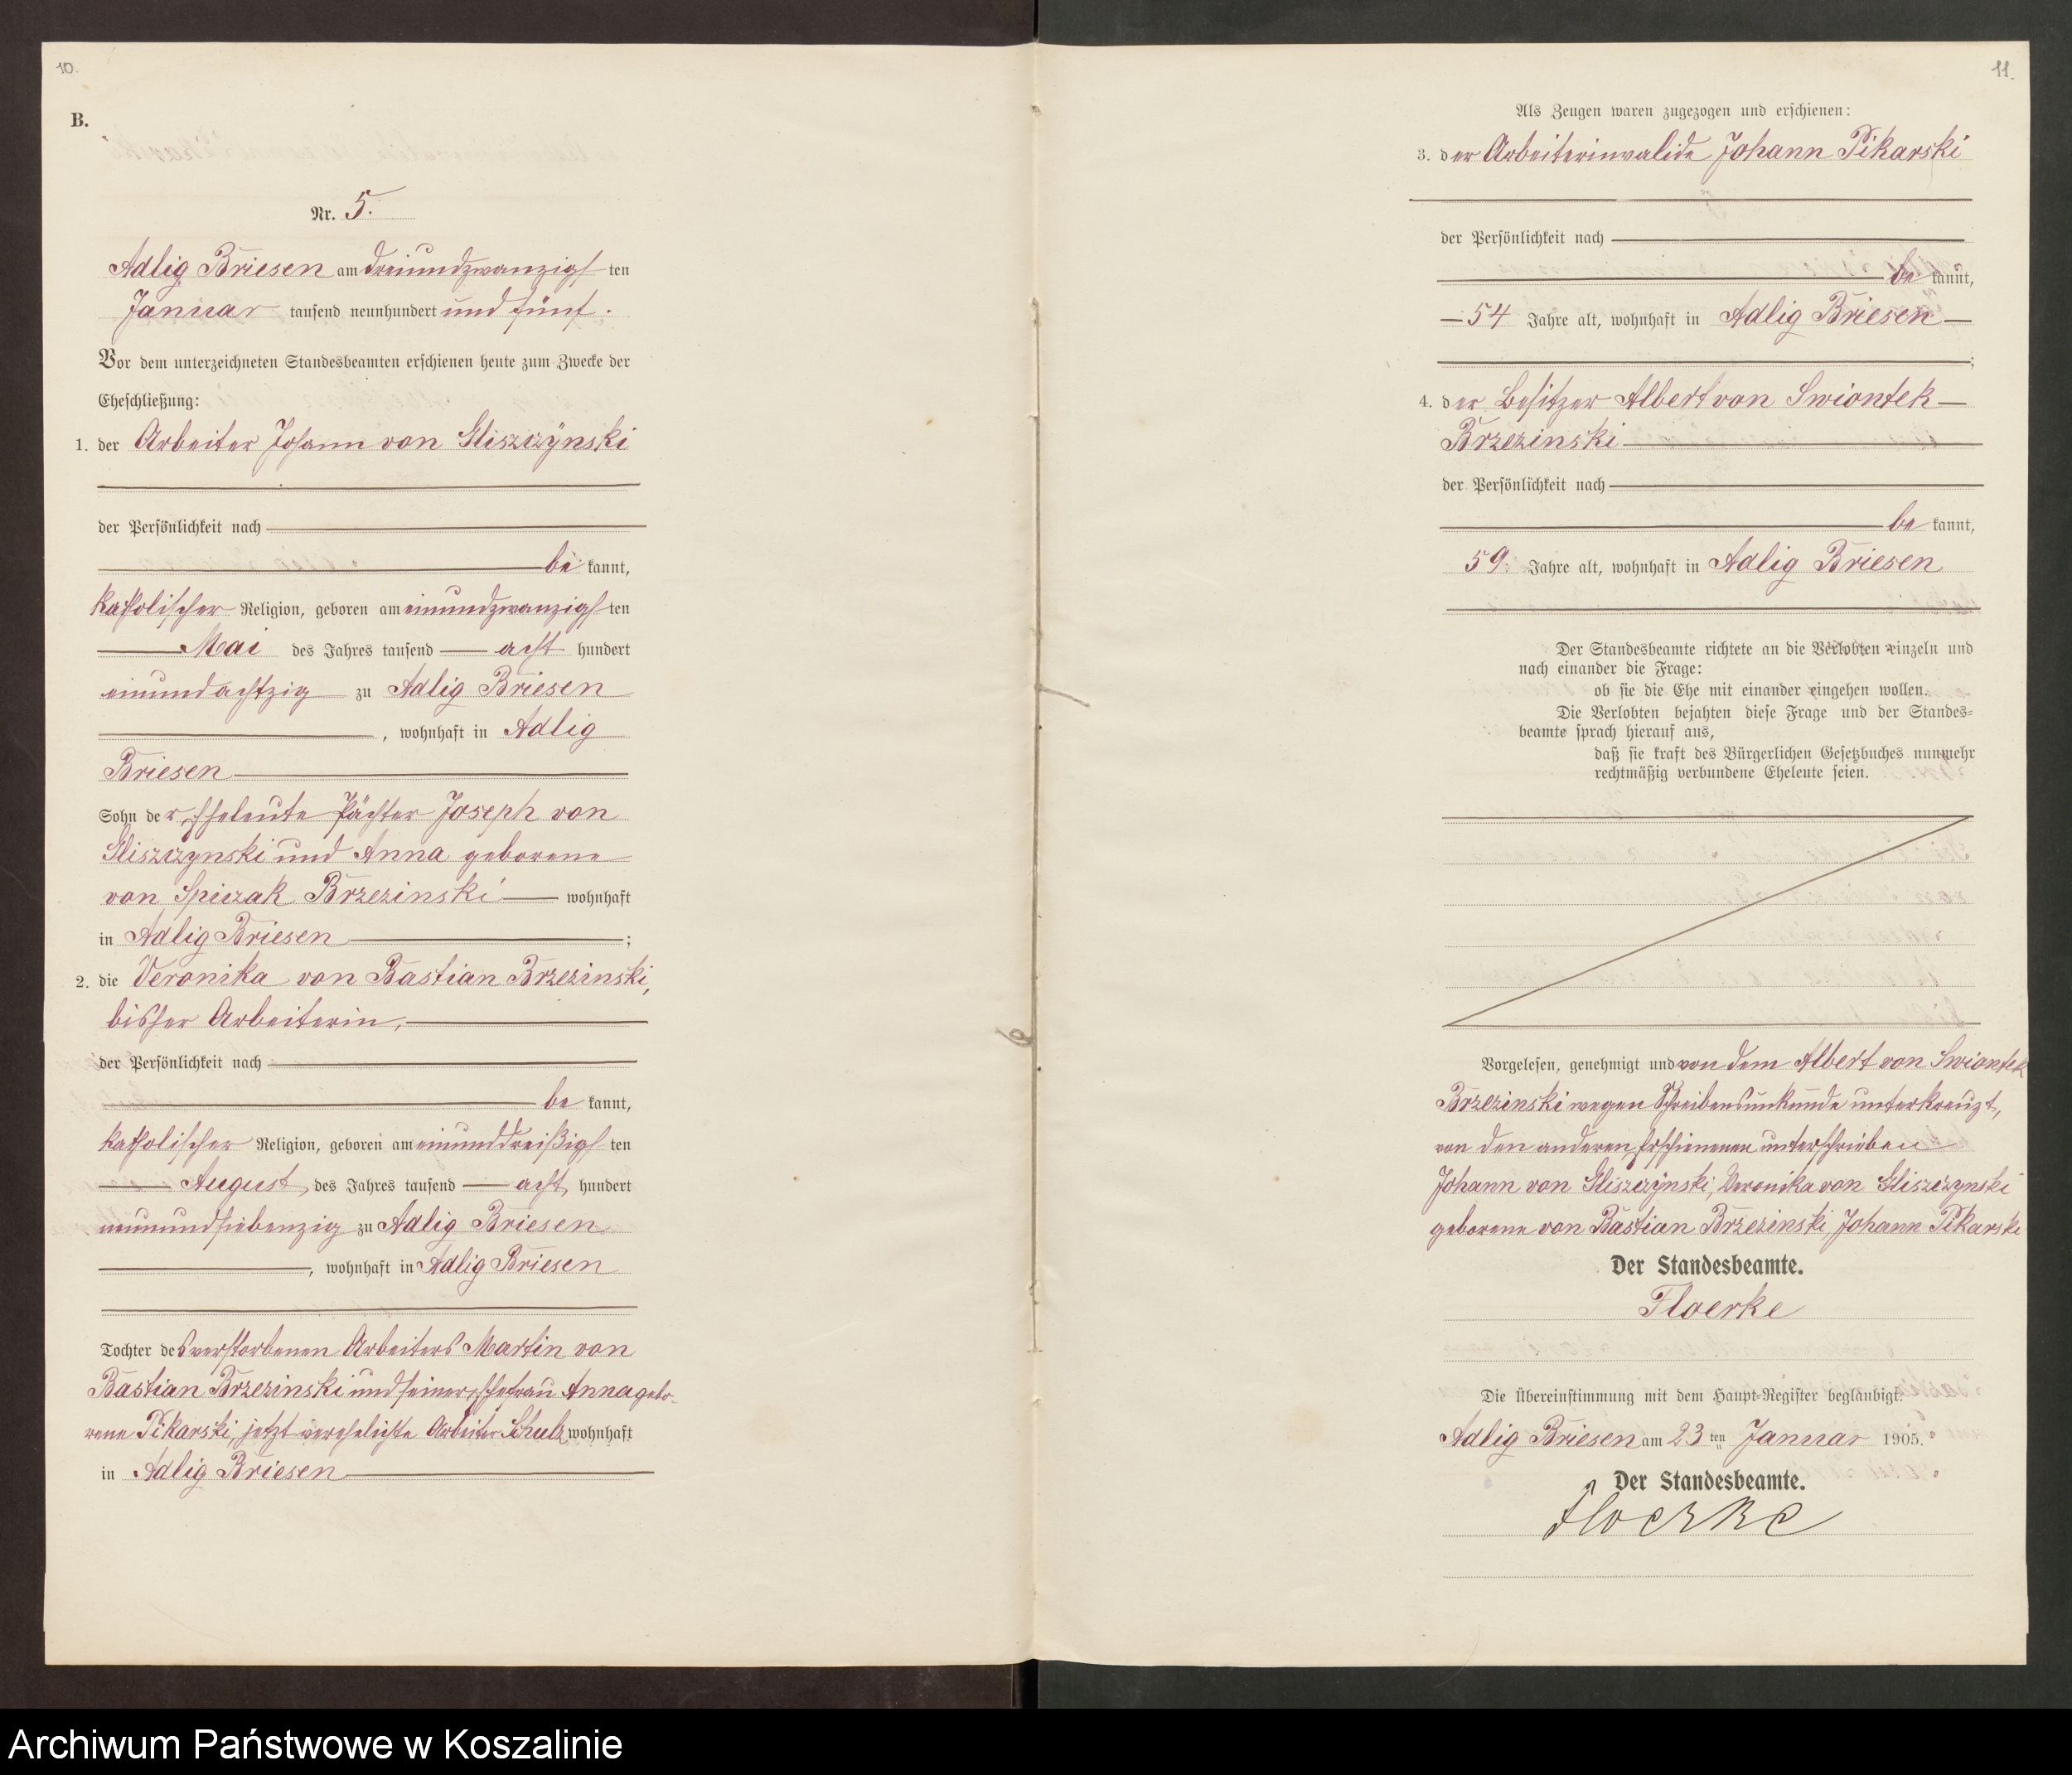 10.
B.
Nr. 5.
Adlig Briesen am dreiundzwanzigsten
Januar tausend neunhundert und fünf.
Vor dem unterzeichneten Standesbeamten erschienen heute zum Zwecke der
Eheschließung:
1. der Arbeiter Johann von Gliszczÿnski
der Persönlichkeit nach
be kannt,
katholischer Religion, geboren am einundzwanzigsten
Mai des Jahres tausend acht hundert
einundachtzig zu Adlig Briesen
, wohnhaft in Adlig
Briesen
Sohn der Eheleute Pächter Joseph von
Gliszczynski und Anna geborene
von Spiczak Brzezinski wohnhaft
in Adlig Briesen ;
2. die Veronika von Bastian Brzezinski,
bisher Arbeiterin,
der Persönlichkeit nach
be kannt,
katholischer Religion, geboren am einunddreißigsten
August des Jahres tausend acht hundert
neunundsiebenzig zu Adlig Briesen
, wohnhaft in Adlig Briesen
Tochter des verstorbenen Arbeiters Martin von
Bastian Brzezinski und seiner Ehefrau Anna gebo-
rene Pikarski, jetzt verehelichte Arbeiter Schulz wohnhaft
in Adlig Briesen
11.
Als Zeugen waren zugezogen und erschienen:
3. der Arbeiterinvalide Johann Pikarski
der Persönlichkeit nach
be kannt,
54 Jahre alt, wohnhaft in Adlig Briesen
;
4. der Besitzer Albert von Swiontek
Brzezinski
der Persönlichkeit nach
be kannt,
59 Jahre alt, wohnhaft in Adlig Briesen
Der Standesbeamte richtete an die Verlobten einzeln und
nach einander die Frage:
ob sie die Ehe mit einander eingehen wollen.
Die Verlobten bejahten diese Frage und der Standes-
beamte sprach hierauf aus,
daß sie kraft des Bürgerlichen Gesetzbuches nunmehr
rechtmäßig verbundene Eheleute seien.
Vorgelesen, genehmigt und von dem Albert von Swiontek
Brzezinski wegen Schreibensunkunde unterkreuzt,
von den anderen Erschienenen unterschrieben
Johann von Gliszczÿnski, Veronika von Gliszczynski
geborene von Bastian Brzezinski, Johann Pikarski
Der Standesbeamte.
Floerke
Die Übereinstimmung mit dem Haupt-Register beglaubigt.
Adlig Briesen am 23 ten Januar 1905.
Der Standesbeamte.
Floerke
Archiwum Państwowe w Koszalinie